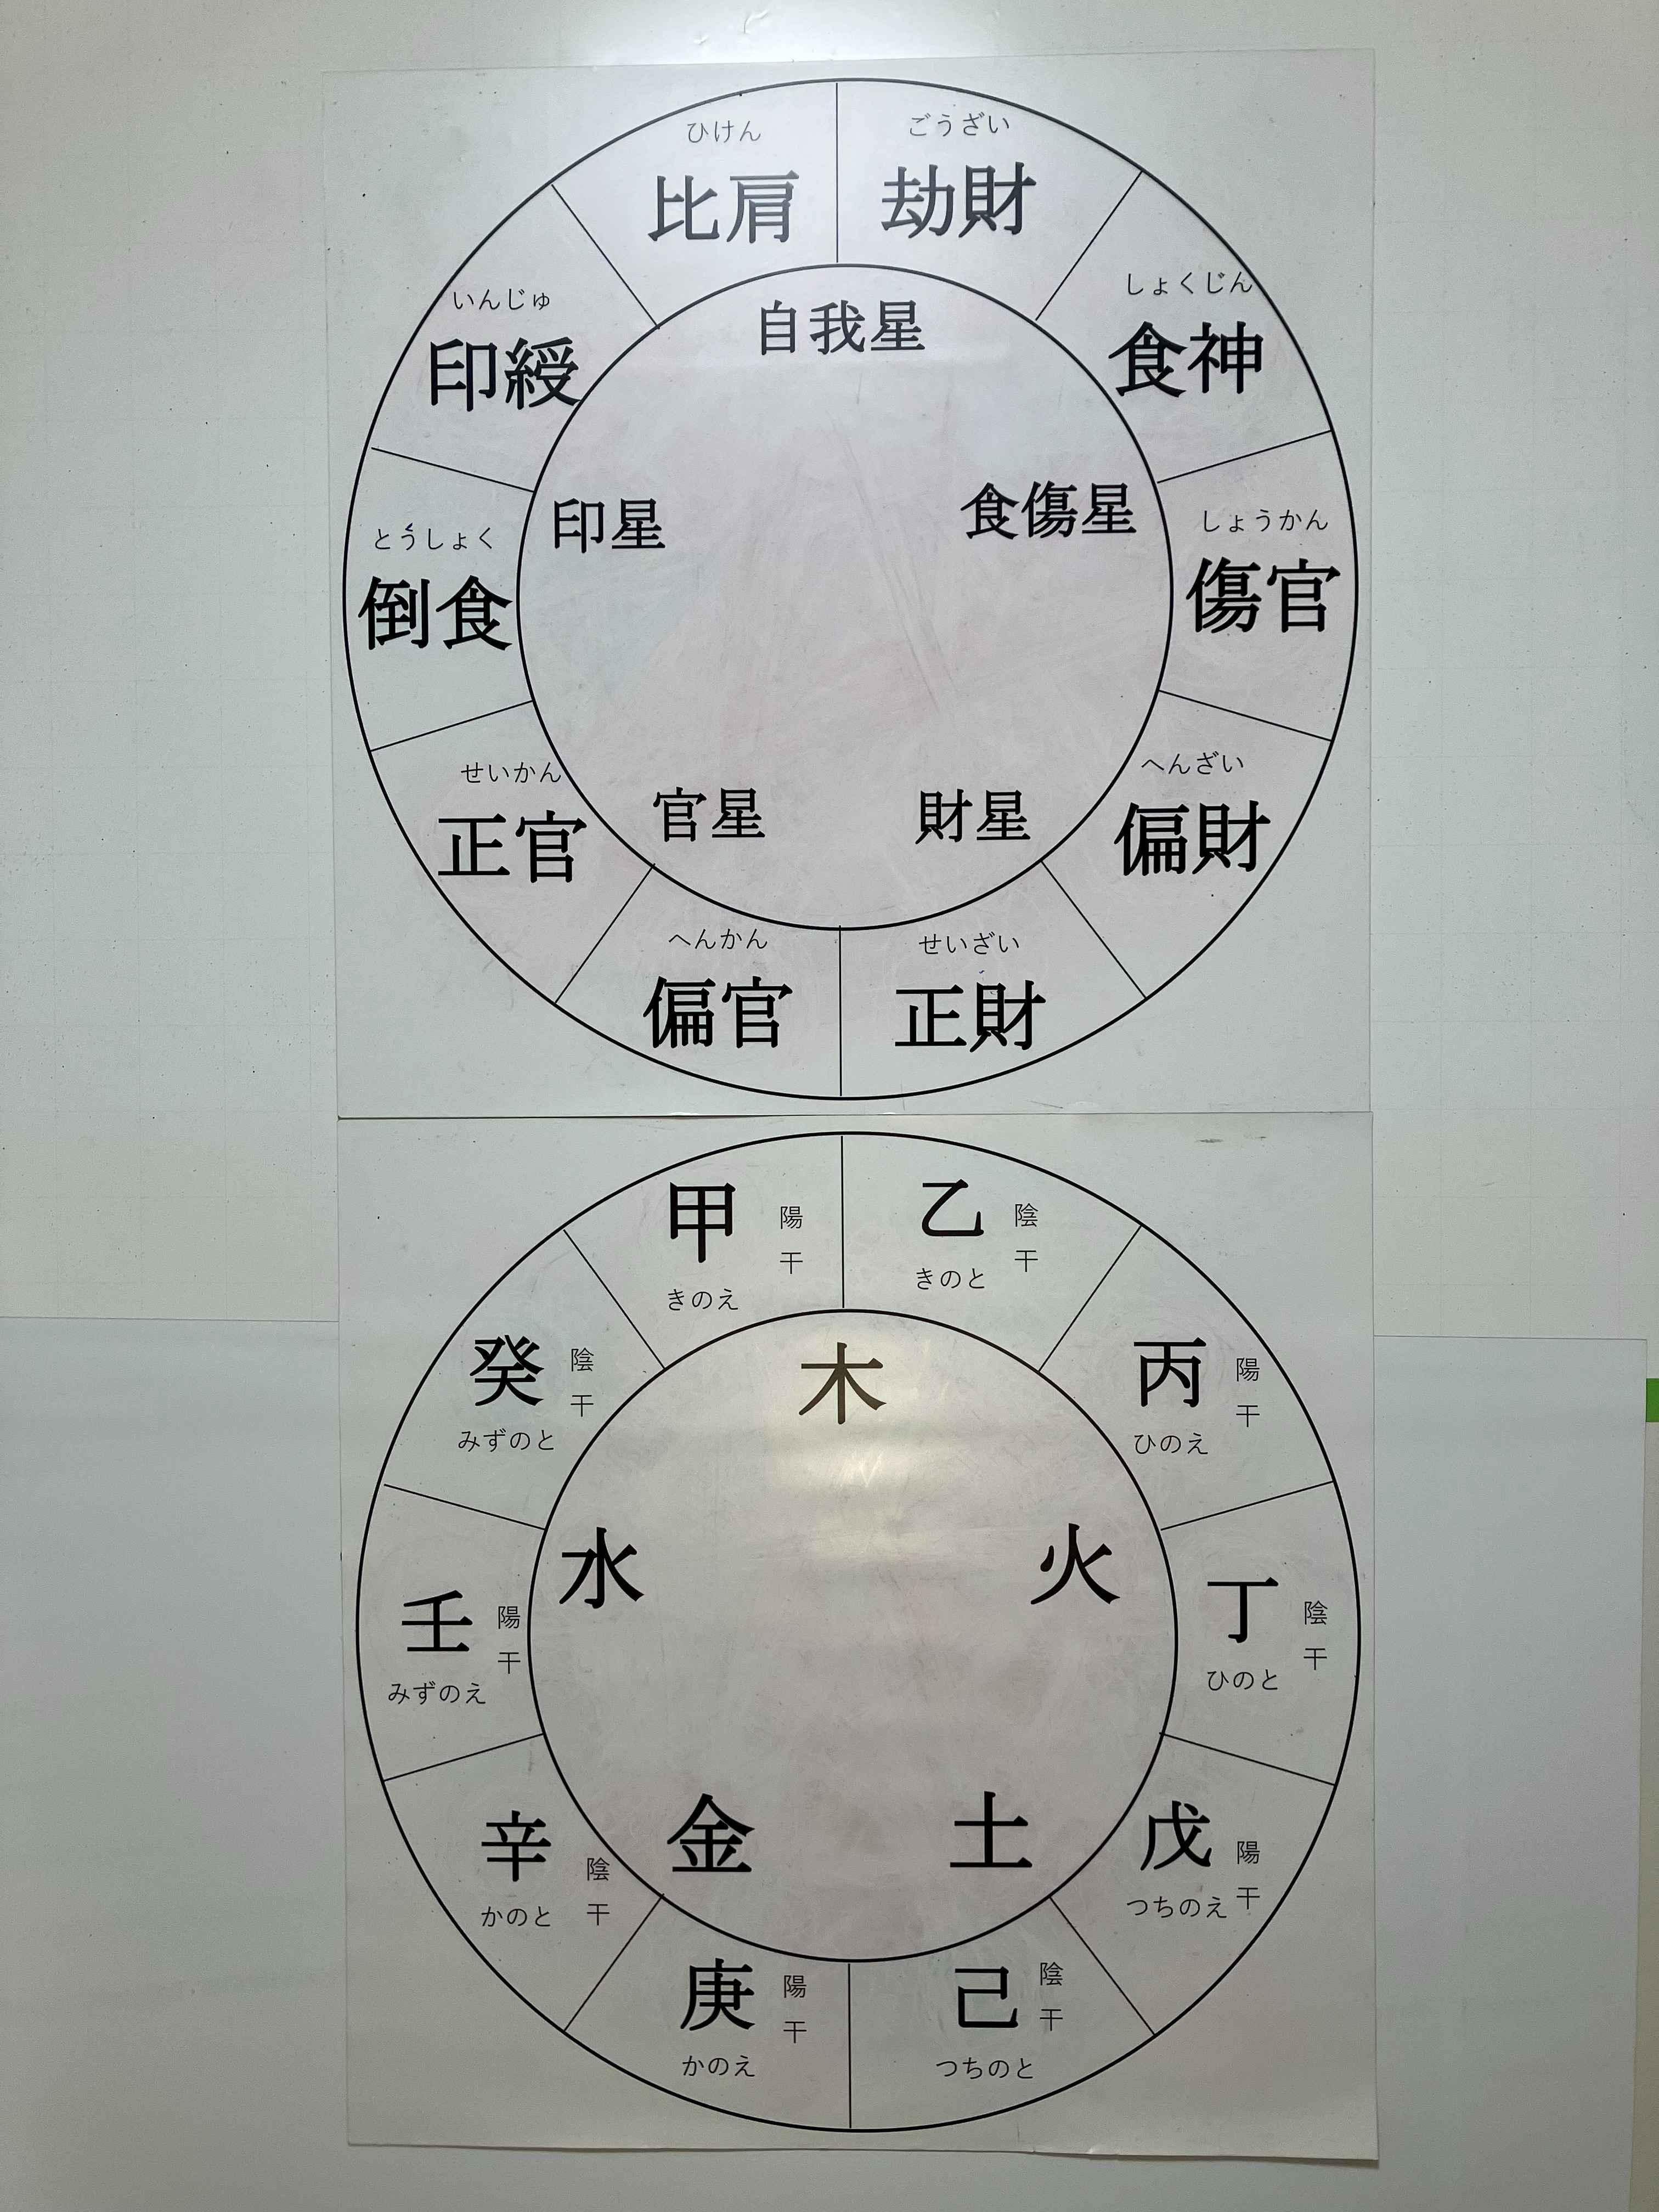 ひけん
比肩
ごうざい
劫財
しょくじん
食神
しょうかん
傷官
へんざい
偏財
せいざい
正財
へんかん
偏官
せいかん
正官
とうしょく
倒食
いんじゅ
印綬
自我星
食傷星
財星
官星
印星
甲
陽干
きのえ
乙
陰干
きのと
丙
陽干
ひのえ
丁
陰干
ひのと
戊
陽干
つちのえ
己
陰干
つちのと
庚
陽干
かのえ
辛
陰干
かのと
壬
陽干
みずのえ
癸
陰干
みずのと
木
火
土
金
水